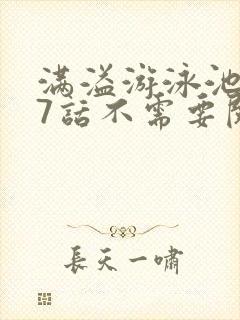 满溢游泳池
7話不需要
長天一嘯